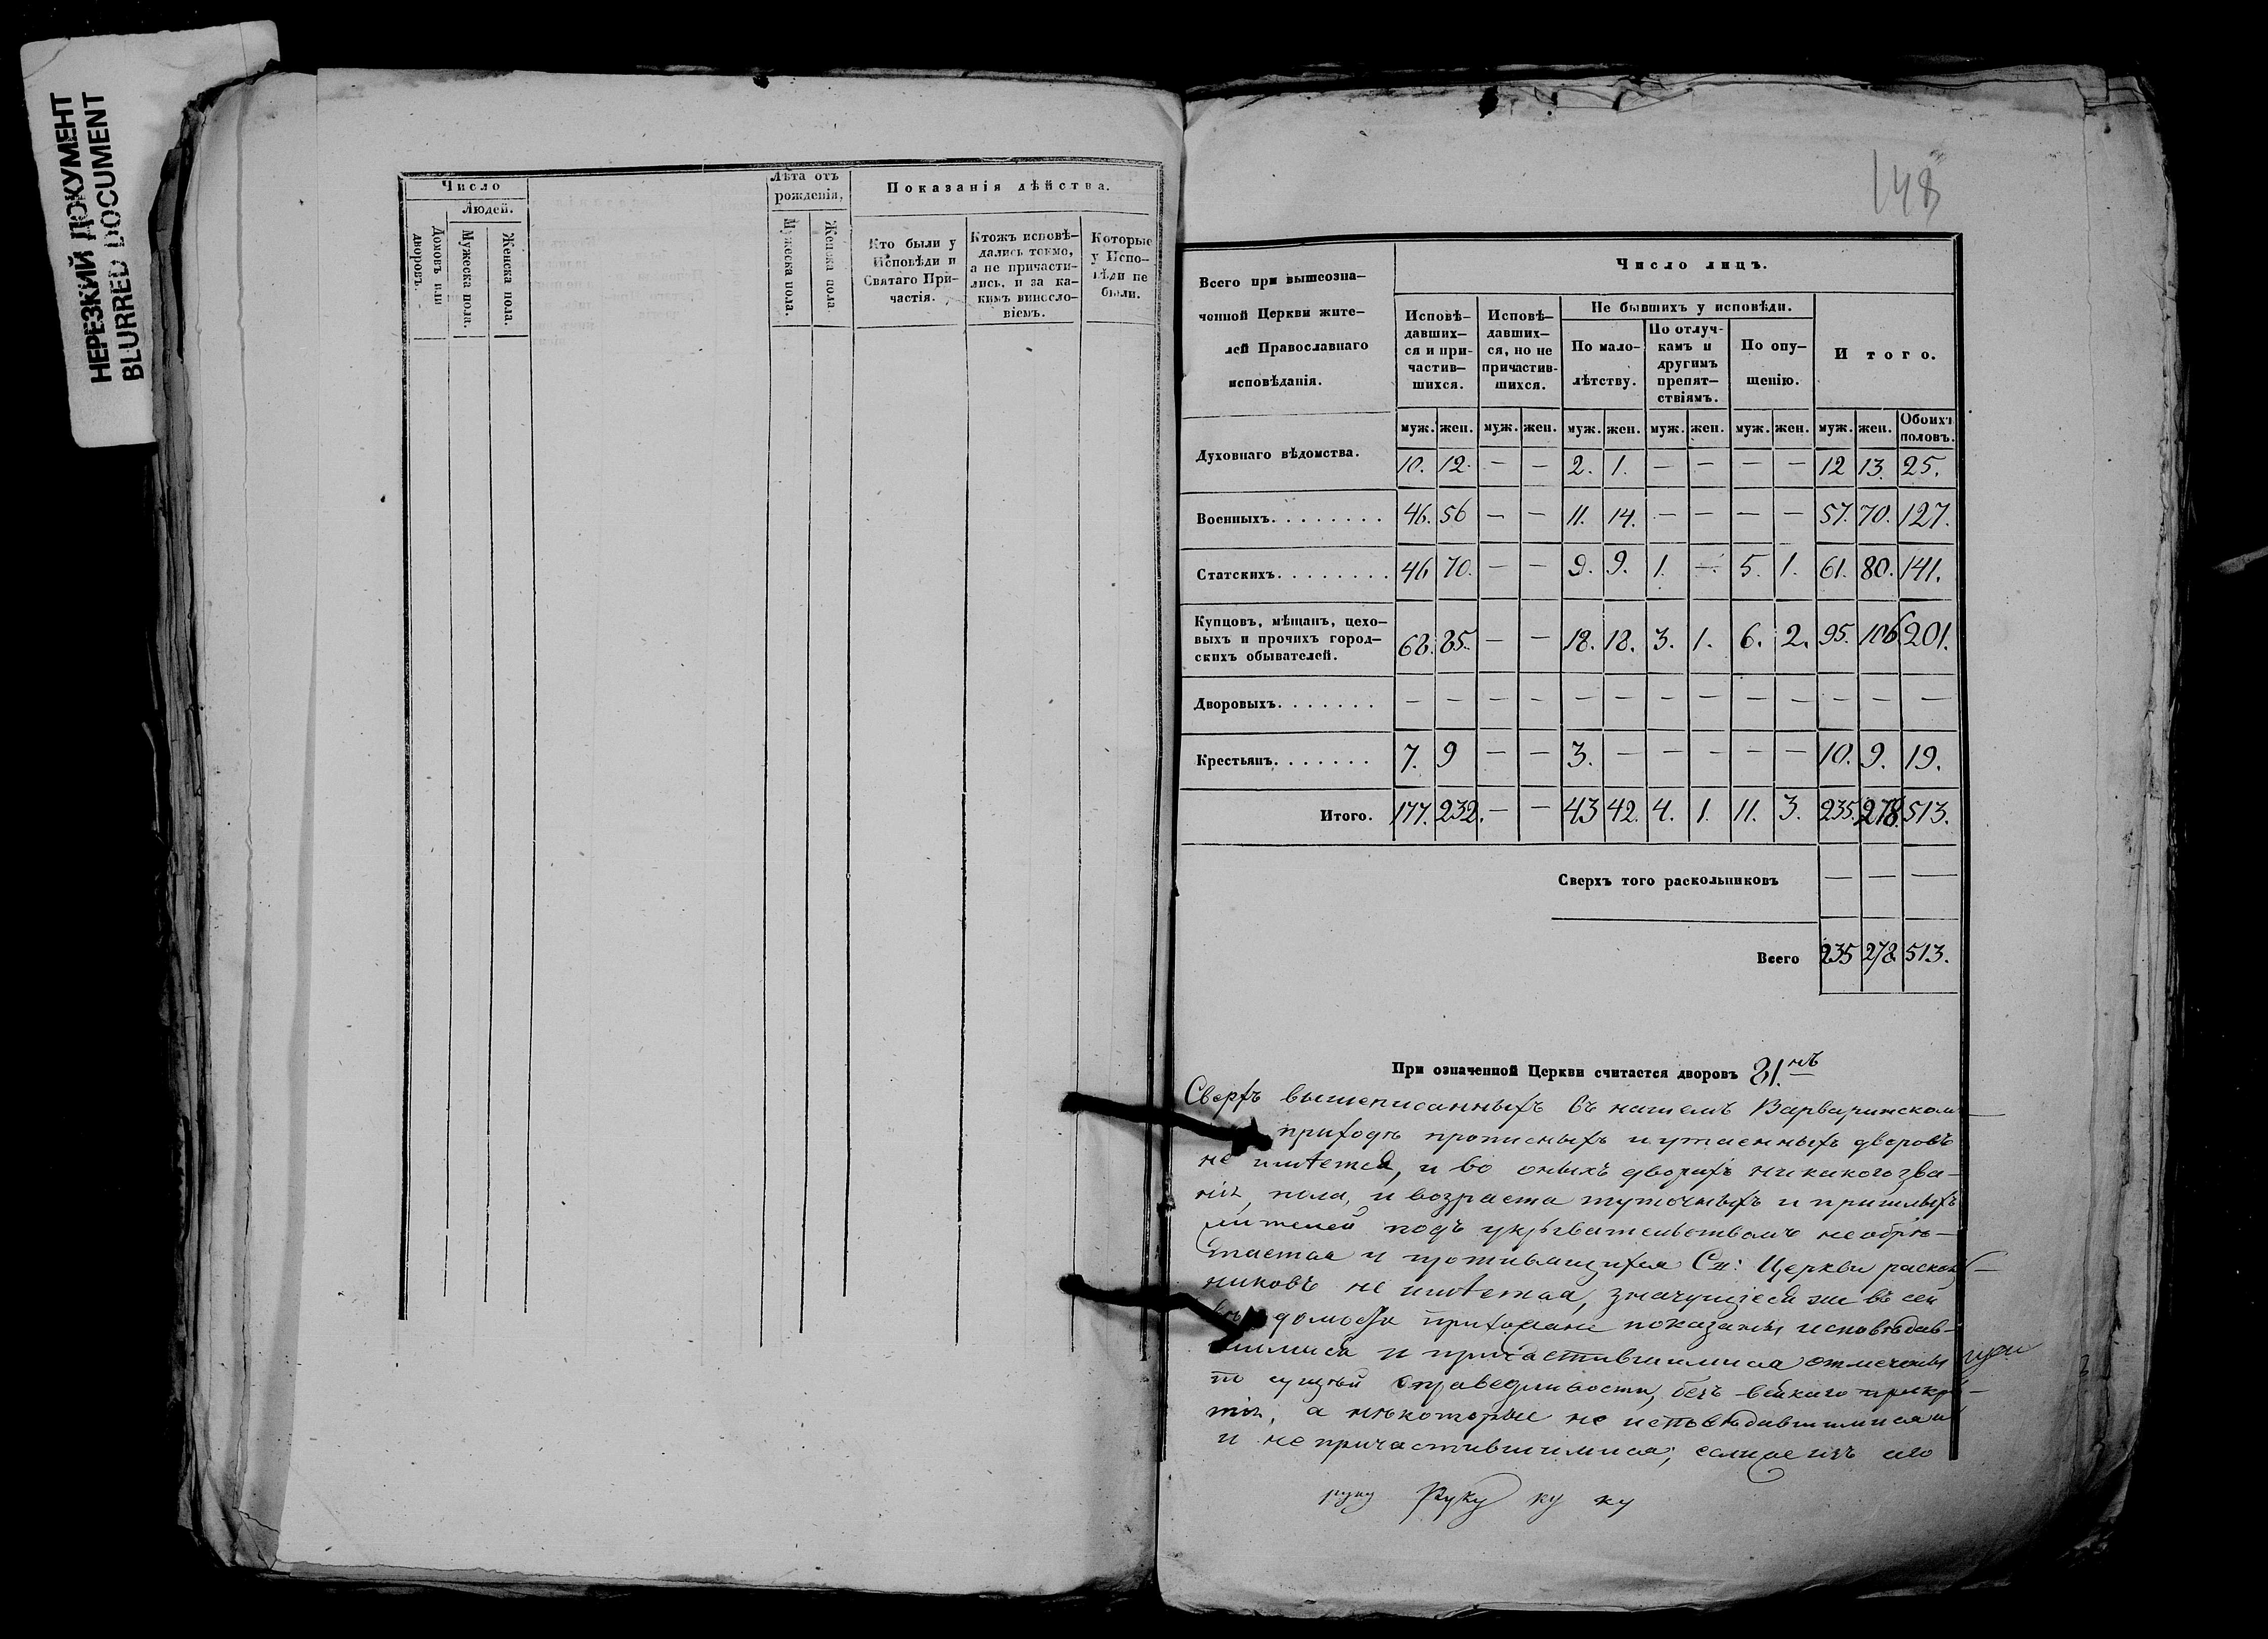 НЕРЕЗКИЙ ДОКУМЕНТ
BLURRED DOCUMENT
Число
Людей.
Домовъ или дворовъ.
Мужеска пола.
Женска пола.
Лѣта отъ рожденія,
Мужеска пола.
Женска пола.
Показанія дѣйства.
Кто были у Исповѣди и Святаго Причастія.
Ктожъ исповѣдались токмо, а не причастились, и за какимъ винословіемъ.
Которые у Исповѣди не были.
148
Всего при вышеозна-
ченной Церкви жите-
лей Православнаго
исповѣданія.
Число лицъ.
Исповѣ-
давших-
ся и при-
частив-
шихся.
Исповѣ-
давших-
ся, но не
причастив-
шихся.
Не бывшихъ у исповѣди.
По мало-
лѣтству.
По отлуч-
камъ и
другимъ
препят-
ствіямъ.
По опу-
щенію.
Итого.
муж. жен. муж. жен. муж. жен. муж. жен. муж. жен. муж. жен. Обоихъ половъ.
Духовнаго вѣдомства. 10. 12. — — 2. 1. — — — — 12 13. 25.
Военныхъ........ 46. 56 — — 11. 14. — — — — 57. 70. 127.
Статскихъ........ 46 70. — — 9. 9. 1. — 5. 1. 61. 80. 141.
Купцовъ, мѣщанъ, цехо-
выхъ и прочихъ город-
скихъ обывателей. 68. 85. — — 18. 18. 3. 1. 6. 2. 95. 106. 201.
Дворовыхъ....... — — — — — — — — — — — — —
Крестьянъ....... 7. 9 — — 3. — — — — — 10. 9. 19.
Итого. 177. 232. — — 43 42. 4. 1. 11. 3. 235. 278. 513.
Сверхъ того раскольниковъ — — —
Всего 235 278. 513.
При означенной Церкви считается дворовъ 81.нъ
Сверхъ вышеписанныхъ въ нашемъ Варваринском
приходѣ прописныхъ и утаенныхъ дворовъ
не имѣется, и во оныхъ дворахъ никакого зва-
нія, пола, и возраста туточныхъ и пришлыхъ
жителей подъ укрывательствомъ необрѣ-
тается и противящихся Св: Церкви раскол-
никовъ не имѣется, значущіеся же въ сей
вѣдомости прихожане показаны исповѣдав-
шимися и причастившимися отмечены
по сущей справедливости, безъ всякаго прикры-
тія, а нѣкоторые не исповѣдавшимися и
и не причастившимися;
руку Руку ку ку